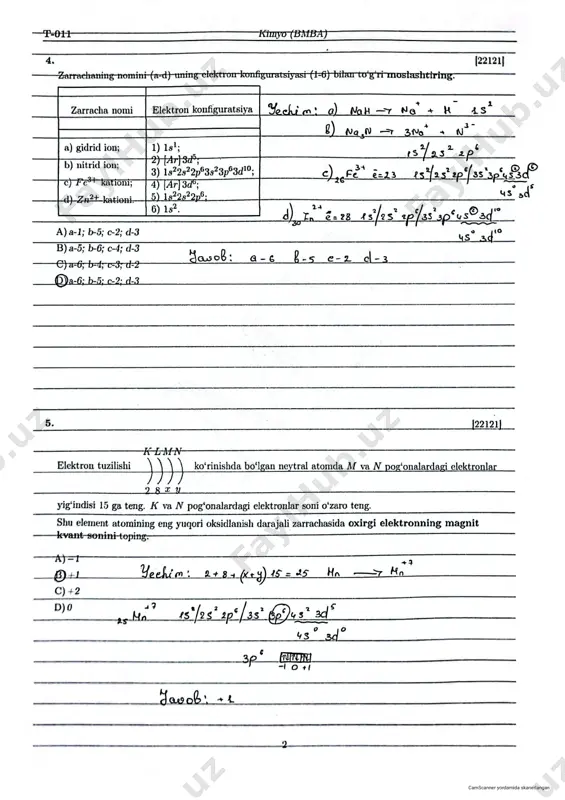 T-011 Kimyo (BMBA)
4. |22121|
Zarrachaning nomini (a-d) uning elektron konfiguratsiyasi (1-6) bilan to'g'ri moslashtiring.
Zarracha nomi Elektron konfiguratsiya
a) gidrid ion;
b) nitrid ion;
c) Fe³⁺ kationi;
d) Zn²⁺ kationi.
1) 1s¹;
2) [Ar]3d⁵;
3) 1s²2s²2p⁶3s²3p⁶3d¹⁰;
4) [Ar]3d⁶;
5) 1s²2s²2p⁶;
6) 1s².
Yechim: a) NaH → Na⁺ + H⁻ 1s²
b) Na₃N → 3Na⁺ + N³⁻
1s²/2s² 2p⁶
c) ₂₆Fe³⁺ ē=23 1s²/2s² 2p⁶/3s² 3p⁶ 4s² 3d⁶
4s⁰ 3d⁵
d) ₃₀Zn²⁺ ē=28 1s²/2s² 2p⁶/3s² 3p⁶ 4s² 3d¹⁰
4s⁰ 3d¹⁰
A) a-1; b-5; c-2; d-3
B) a-5; b-6; c-4; d-3
C) a-6; b-4; c-3; d-2
D) a-6; b-5; c-2; d-3
Javob: a-6 b-5 c-2 d-3
5. |22121|
K L M N
Elektron tuzilishi ) ) ) ) ko'rinishda bo'lgan neytral atomda M va N pog'onalardagi elektronlar
2 8 x y
yig'indisi 15 ga teng. K va N pog'onalardagi elektronlar soni o'zaro teng.
Shu element atomining eng yuqori oksidlanish darajali zarrachasida oxirgi elektronning magnit
kvant sonini toping.
A) −1
B) +1
C) +2
D) 0
Yechim: 2+8+(x+y) 15 = 25 Mn → Mn⁺⁷
₂₅Mn⁺⁷ 1s²/2s² 2p⁶/3s² 3p⁶ 4s² 3d⁵
4s⁰ 3d⁰
3p⁶ ↑↓ ↑↓ ↑↓
-1 0 +1
Javob: +1
2
CamScanner yordamida skanerlangan
FaylHub.uz